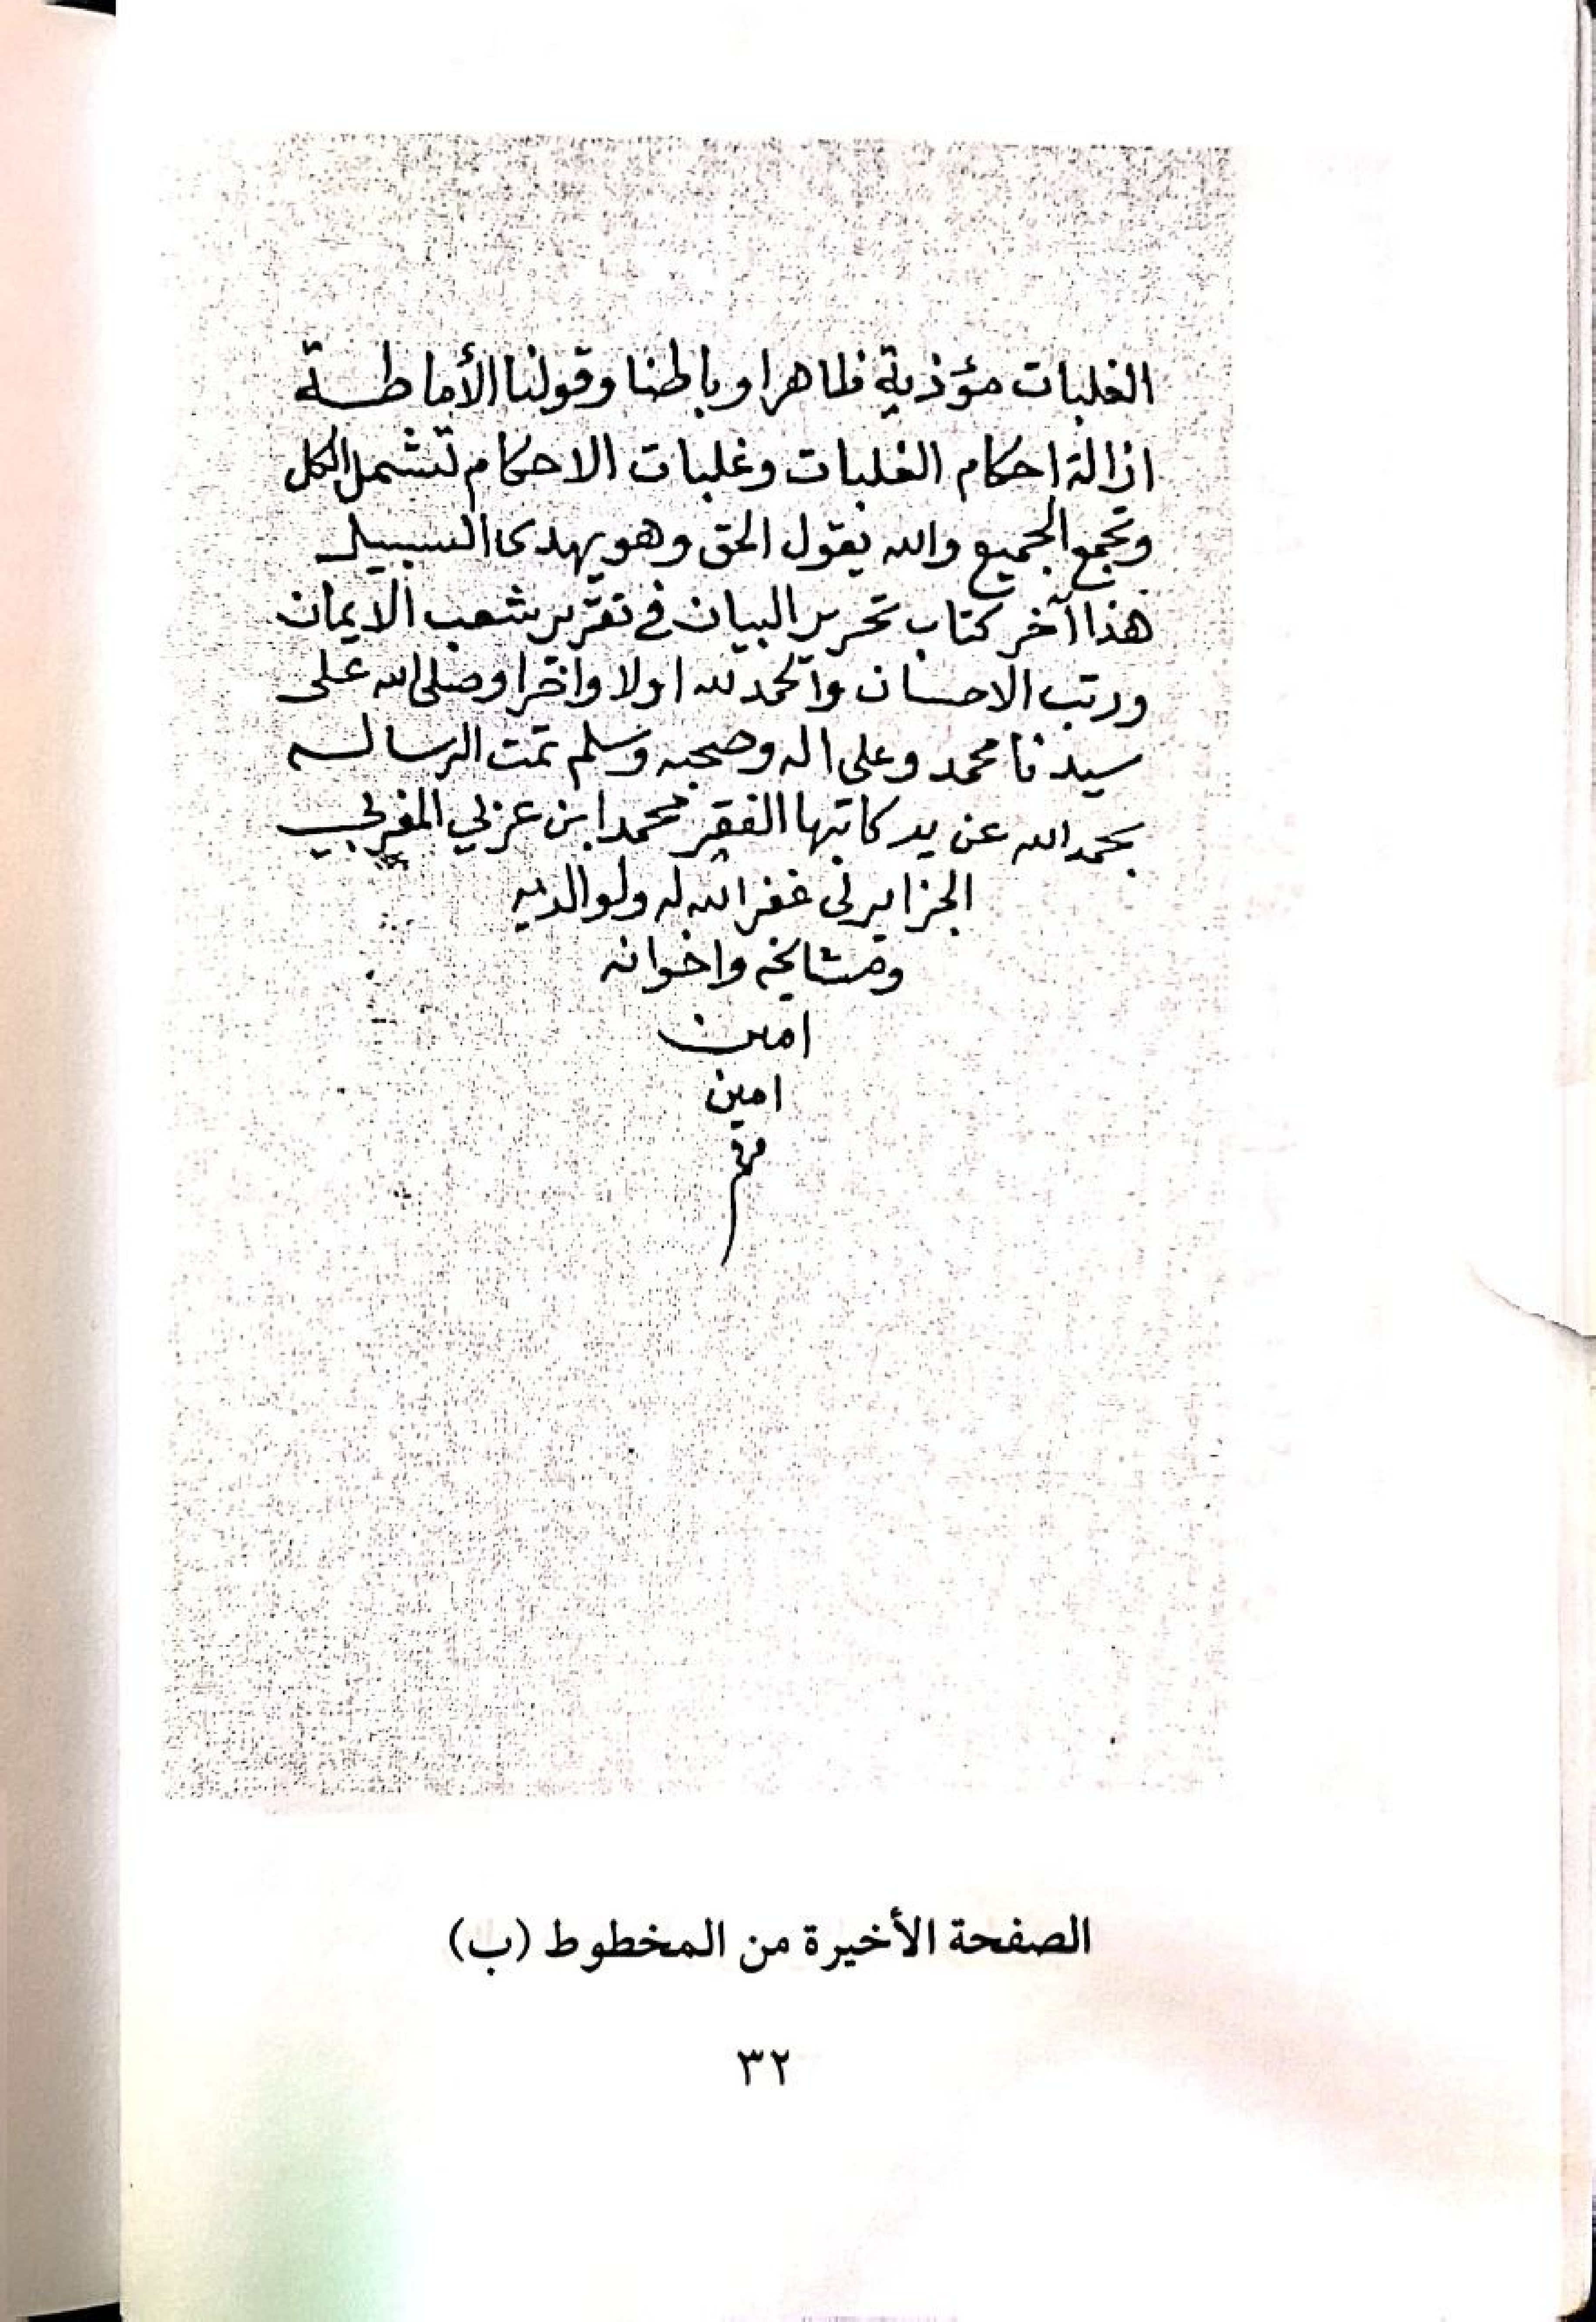 الغلبات مؤذية ظاهرا وباطنا وقولنا الأماطة
ازالة احكام الغلبات وغلبات الاحكام تشمل الكل
وتجمع الجميع والله يقول الحق وهو يهدى السبيل
هذا آخر كتاب تحرير البيان في تقرير شعب الايمان
ورتب الاحسان والحمد لله اولا واخرا وصلى الله على
سيدنا محمد وعلى اله وصحبه وسلم تمت الرساله
بحمد الله عن يد كاتبها الفقير محمد ابن عزلي المغربي
الجزايرلى غفر الله له ولوالديه
ومشايخه واخوانه
امين
امين
م
الصفحة الأخيرة من المخطوط (ب)
٣٢